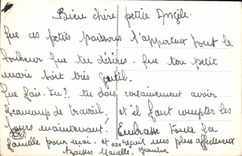 Bien chère petite Angèle
que ces petits poissons t'apportent tout le
bonheur que tu désires. Que ton petit
mari soit très gentil.
Que fais-tu? tu dois certainement avoir
beaucoup de travail, et il faut compter les
jours maintenant. Embrasse toute la
famille pour moi. et reçois mes plus affectueux